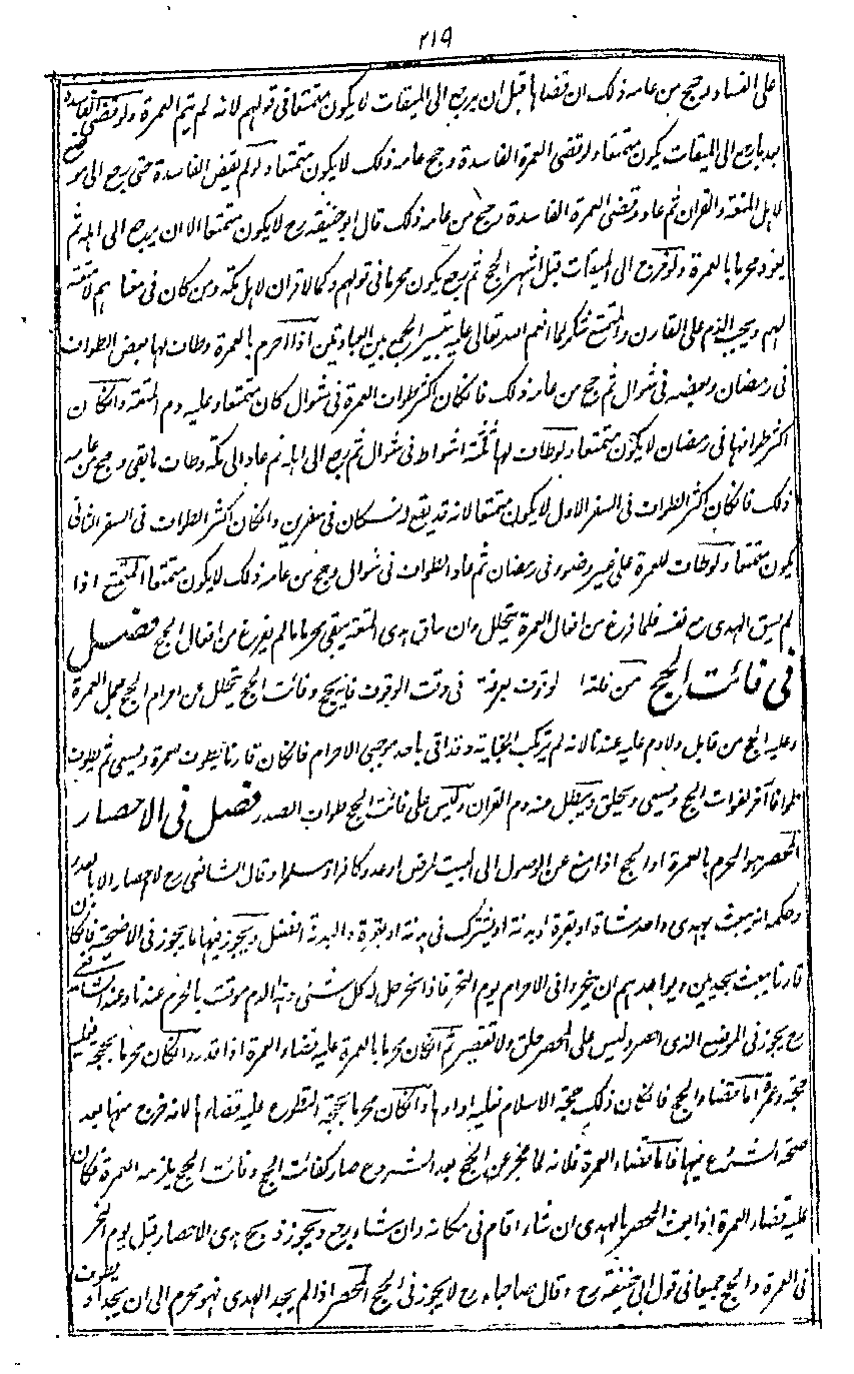 ٢١٩
على الفساد وحج من عامه ذلك ان قضاها قبل ان يرجع الى الميقات لا يكون متمتعا فى قولهم لانه لم يتم العمرة ولو قضى الفاسدة
بعد ما رجع الى الميقات يكون متمتعا ولو قضى العمرة الفاسدة وحج عامه ذلك لا يكون متمتعا ولو لم يقض الفاسدة حتى رجع الى موضع
لاهل المتعة والقران ثم عاد وقضى العمرة الفاسدة وحج من عامه ذلك قال ابو حنيفة رح لا يكون متمتعا الا ان يرجع الى اهله ثم
يعود محرما بالعمرة ولو خرج الى الميقات قبل اشهر الحج ثم رجع يكون محرما فى قولهم وكما لا قران لاهل مكة ومن كان فى معناهم لا متعة
لهم ويجب الدم على القارن والمتمتع شكرا لما انعم الله تعالى عليه بتيسير الجمع بين العبادتين اذا احرم بالعمرة وطاف لها بعض الطواف
فى رمضان وبعضه فى شوال ثم حج من عامه ذلك فان كان اكثر طواف العمرة فى شوال كان متمتعا وعليه دم المتعة وان كان
اكثر طوافها فى رمضان لا يكون متمتعا ولو طاف لها ثلثة اشواط فى شوال ثم رجع الى اهله ثم عاد الى مكة وطاف ما بقى وحج من عامه
ذلك فان كان اكثر الطواف فى السفر الاول لا يكون متمتعا لانه قد يقع له نسكان فى سفرين وان كان اكثر الطواف فى السفر الثانى
يكون متمتعا ولو طاف للعمرة على غير وضوء فى رمضان ثم عاد الطواف فى شوال وحج من عامه ذلك لا يكون متمتعا المتمتع اذا
لم يسق الهدى مع نفسه فلما فرغ من افعال العمرة يتحلل وان ساق هدى المتعة يبقى محرما ما لم يفرغ من افعال الحج فصل
فى فائت الحج من فاته الوقوف بعرفة فى وقت الوقوف فاته الحج وفائت الحج يتحلل من احرام الحج بعمل العمرة
وعليه الحج من قابل ولا دم عليه عندنا لانه لم يرتكب الجناية وقد اتى باحد موجبى الاحرام فان كان قارنا يطوف للعمرة ويسعى ثم يطوف
طوافا آخر لفوات الحج ويسعى ويحلق ويبطل عنه دم القران وليس على فائت الحج طواف الصدر فصل فى الاحصار
المحصر هو المحرم بالعمرة او الحج اذا منع عن الوصول الى البيت لمرض او عدو كافر او مسلم وقال الشافعى رح لا احصار الا بالعدو
وحكمه انه يبعث بهدى واحد شاة او بقرة او بدنة او يشترك فى بدنة او بقرة والبدنة افضل ويجوز فيها ما يجوز فى الاضحية فان كان
قارنا يبعث بهديين ويواعدهم ان ينحروا فى الاحرام يوم النحر فاذا نحر حل له كل شئ وهذا الدم موقت بالحرم عندنا وعند الشافعى
رح يجوز فى الموضع الذى احصر وليس على المحصر حلق ولا تقصير ثم ان كان محرما بالعمرة عليه قضاء العمرة اذا قدر وان كان محرما بحجة فعليه
حجة وعمرة اما قضاء الحج فان كان ذلك حجة الاسلام فعليه اداؤها وان كان محرما بحجة التطوع عليه قضاءها لانه خرج منها بعد
صحة الشروع فيها فاما قضاء العمرة فلانه لما عجز عن الحج بعد الشروع صار كفائت الحج وفائت الحج يلزمه العمرة فكان
عليه قضاء العمرة اذا بعث المحصر بالهدى ان شاء اقام فى مكانه وان شاء رجع ويجوز ذبح هدى الاحصار قبل يوم النحر
فى العمرة والحج جميعا فى قول ابى حنيفة رح وقال صاحباه رح لا يجوز فى الحج المحصر اذا لم يجد الهدى فهو محرم الى ان يجد او يطوف